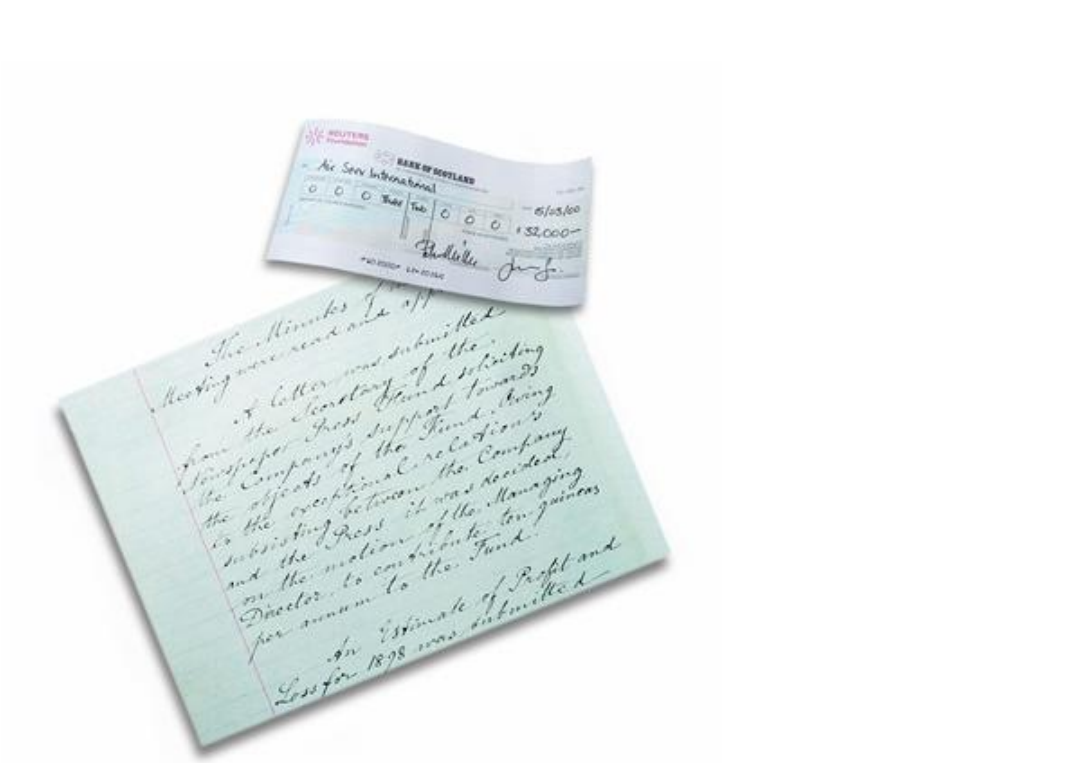 REUTERS
Foundation
BANK OF SCOTLAND
Air Serv International
0 0 0 Three Two 0 0 0
15/03/00
32,000—
The Minutes of
Meeting were read and app
A letter was submitted
from the Secretary of the
Newspaper Press Fund soliciting
the Company's support towards
the objects of the Fund. Owing
to the exceptional relation's
subsisting between the Company
and the Press it was decided,
on the motion of the Managing
Director, to contribute ten guineas
per annum to the Fund.
An Estimate of Profit and
Loss for 1898 was submitted